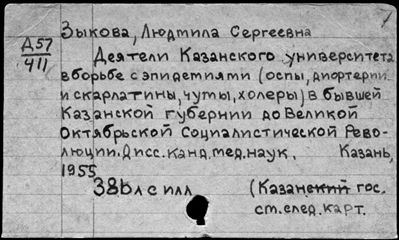 Д57
411
Зыкова, Людмила Сергеевна
Деятели Казанского университета
в борьбе с эпидемиями (оспы, дифтерии
и скарлатины, чумы, холеры) в бывшей
Казанской губернии до Великой
Октябрьской Социалистической Рево-
люции. Дисс. канд. мед. наук. Казань,
1955
386 л с илл (Казанский гос.
ст. след. карт.